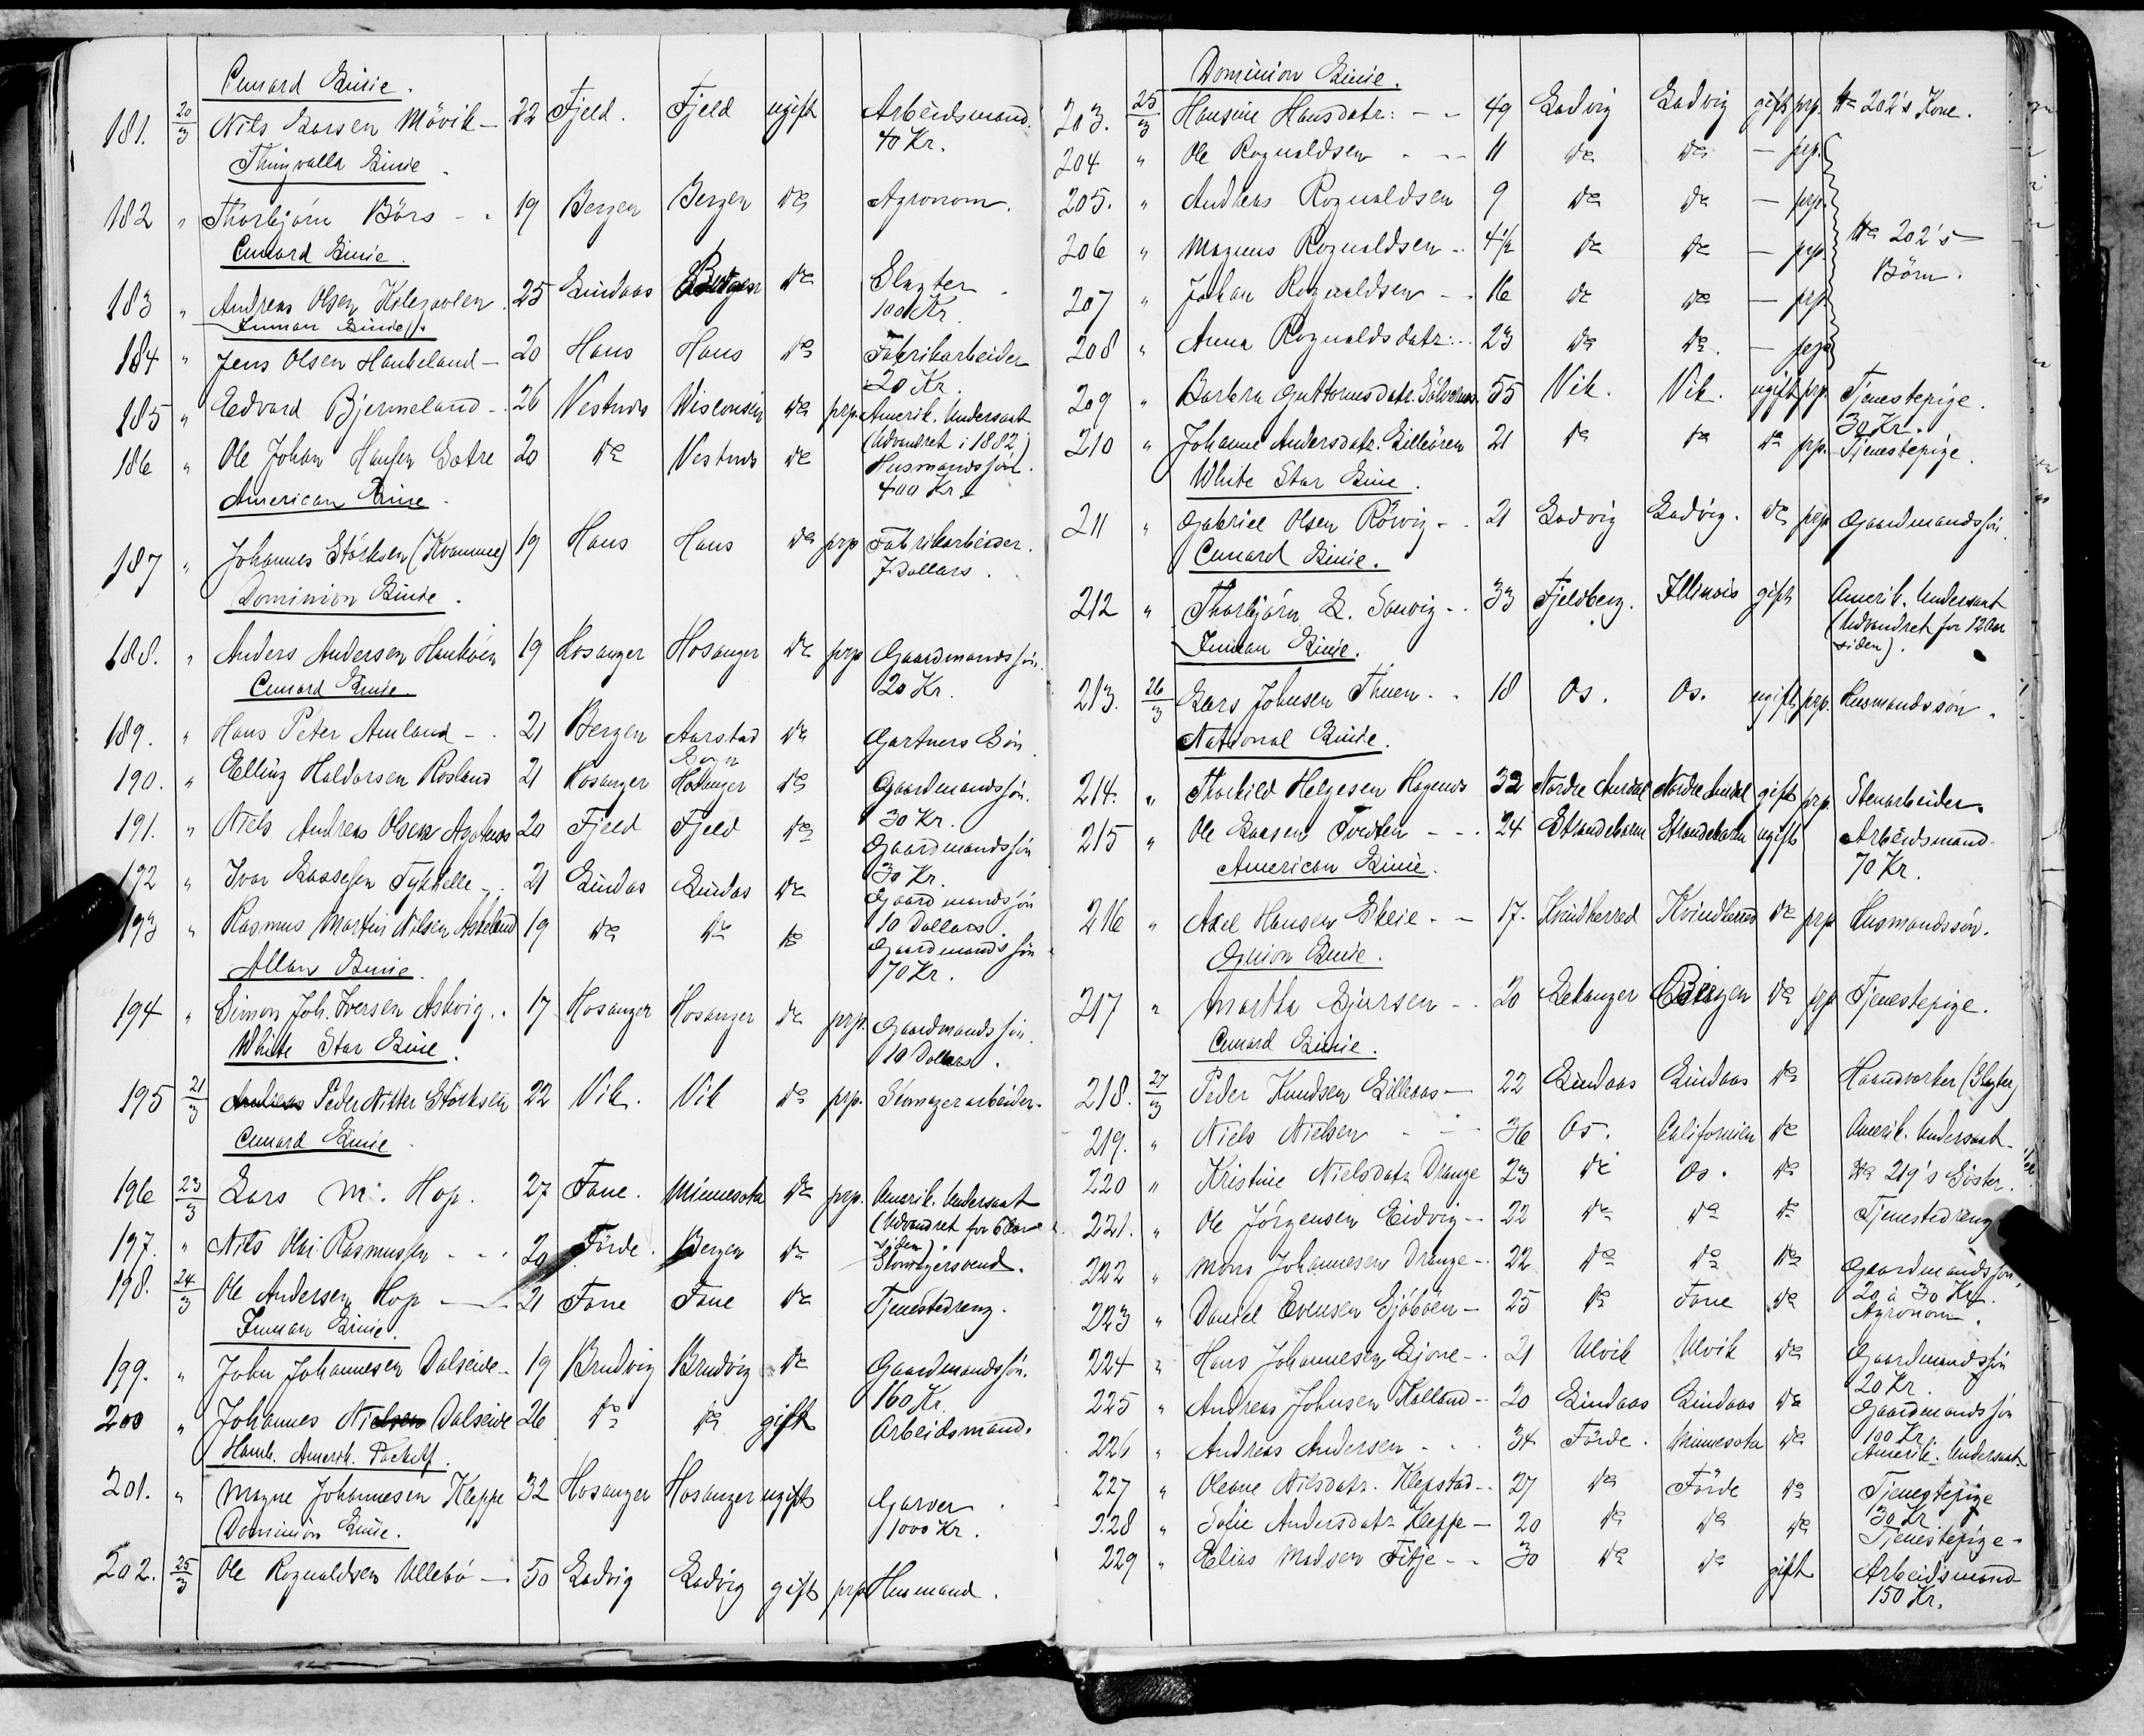 Cunard Linie.
181. 20/3 Nils Larsen Mövik - 22 Fjeld. Fjeld ugift Arbeidsmand.
40 Kr.
Thingvalla Linie.
182 " Thorbjörn Börs - - 19 Bergen Bergen do Agronom.
Cunard Linie.
183 " Andreas Olsen 25 Lindaas Bergen do Slagter.
100 Kr.
Inman Linie.
184 " Jens Olsen Haukeland - 20 Haus Haus do Fabrikarbeider
20 Kr.
185 " Edvard Bjermeland - 26 Vestnes Wisconsin do prp. Amerik. Undersaat
(Udvandret i 1882)
186 " Ole Johan Hansen Sætre 20 do Vestnes do Husmandssön.
400 Kr.
American Linie.
187 " Johannes Störksen (Kvamme) 19 Haus Haus do prp Fabrikarbeider.
7 Dollars.
Dominion Linie.
188. " Anders Andersen 19 Hosanger Hosanger do prp Gaardmandssön.
20 Kr.
Cunard Linie.
189. " Hans Peter Amland - . 21 Bergen Aarstad do Gartners Sön
190. " Elling Haldorsen Rosland 21 Hosanger Hosanger do Gaardmandssön.
30 Kr.
191. " Niels Andreas Olsen 20 Fjeld Fjeld do Gaardmandssön
30 Kr.
192 " Ivar Lassesen 21 Lindas Lindas do Gaardmandssön
10 Dollars.
193 " Rasmus Martin Nilsen 19 do do do Gaardmandssön
70 Kr.
Allan Linie.
194 " Simon Joh. Iversen Askvig. . 17 Hosanger Hosanger do prp. Gaardmandssön.
10 Dollars.
White Star Linie.
195 21/3 Peder Nitter Störksen 22 Vik. Vik do prp. Skomagerarbeider.
Cunard Linie
196 23/3 Lars M. Hop. 27 Fane. Minnesota do prp. Amerik. Undersaat
(Udvandret for 6 Aar
siden).
197. " Nils Olai Rasmussen - - . 20 Förde. Bergen do Skomagersvend.
198. 24/3 Ole Andersen Hop - 21 Fane Fane do Tjenestedreng.
Inman Linie.
199. " John Johannesen Dalseide - 19 Bruvig Bruvig do Gaardmandssön.
160 Kr.
200 " Johannes Nielsen Dalseide 26 do do gift Arbeidsmand.
Hamb. Amerik. Packetf.
201. " Magne Johannesen Kleppe 32 Hosanger Hosanger ugift Garver.
1000 Kr.
Dominion Linie.
202. 25/3 Ole Rognaldsen Ullebö - 50 Ladvig Ladvig gift prp Husmand.
Dominion Linie.
203. 25/3 Hansine Hansdatr: - - 49 Ladvig Ladvig gift prp. No 202's Kone.
204 " Ole Rognaldsen - - - 11 do do - prp.
205. " Andreas Rognaldsen 9 do do - prp.
206 " Magnus Rognaldsen - . 4 1/2 do do - prp. No 202's
Börn.
207 " Johan Rognaldsen - - 16 do do - prp
208 " Anna Rognaldsdatr: . . 23 do do. - prp
209 " Barbra Guttormsdatr. 55 Vik. Vik. ugift prp. Tjenestepige.
30 Kr.
210 " Johanne Andersdatr. Lilleören 21 do do do prp. Tjenestepige.
White Star Linie.
211 " Gabriel Olsen Rörvig - . 21 Ladvig Ladvig. do prp Gaardmandssön.
Cunard Linie.
212 " Thorbjörn L. Sanvig - . 33 Fjeldberg. Illinois gift Amerik. Undersaat
(Udvandret for 12 Aar
siden).
Inman Linie.
213. 26/3 Lars Johnsen Thuen - . 18 Os. Os. ugift prp. Husmandssön.
National Linie.
214. " Thorkild Helgesen Hagenæs 32 Nordre Aurdal Nordre Aurdal gift prp. Stenarbeider.
215 " Ole Larsen Tvedten - - . 24 Strandebarm Strandebarm ugift Arbeidsmand.
70 Kr.
American Linie.
216 " Axel Hansen Skeie - - 17. Kvindherred Kvindherred do prp. Husmandssön.
Guion Linie.
217 " Martha Gjursen - . 20 Lekanger Bergen do prp Tjenestepige.
Cunard Linie.
218. 27/3 Peder Knudsen Lilleaas - 22 Lindaas Lindaas do Haandverker (Slagter)
219. " Niels Nielsen - - 36 Os. Californien do Amerik. Undersaat.
220 " Kristine Nielsdatr. Drange 23 do Os. do No 219's Söster.
221. " Ole Jörgensen Eidvig - - 22 do do do Tjenestedreng
222 " Mons Johannesen Drange - . 22 do do do Gaardmandssön,
20 à 30 Kr.
223 " Daniel Evensen Sjöböen - 25 do Fane do Agronom.
224 " Hans Johannesen Ljone - . 21 Ulvik Ulvik do Gaardmandssön
20 Kr.
225 " Andreas Johnsen Kalland - . 20 Lindaas Lindaas do Gaardmandssön
100 Kr.
226 " Andreas Andersen - . . 34 Förde. Minnesota do Amerik. Undersaat
227 " Oleane Nilsdatr. Klepstad - . 27 do Förde do Tjenestepige
30 Kr.
228 " Sofie Andersdatr. Kleppe - 20 do do do Tjenestepige -
229 " Elias Madsen Fitje - - 30 do do gift Arbeidsmand
150 Kr.